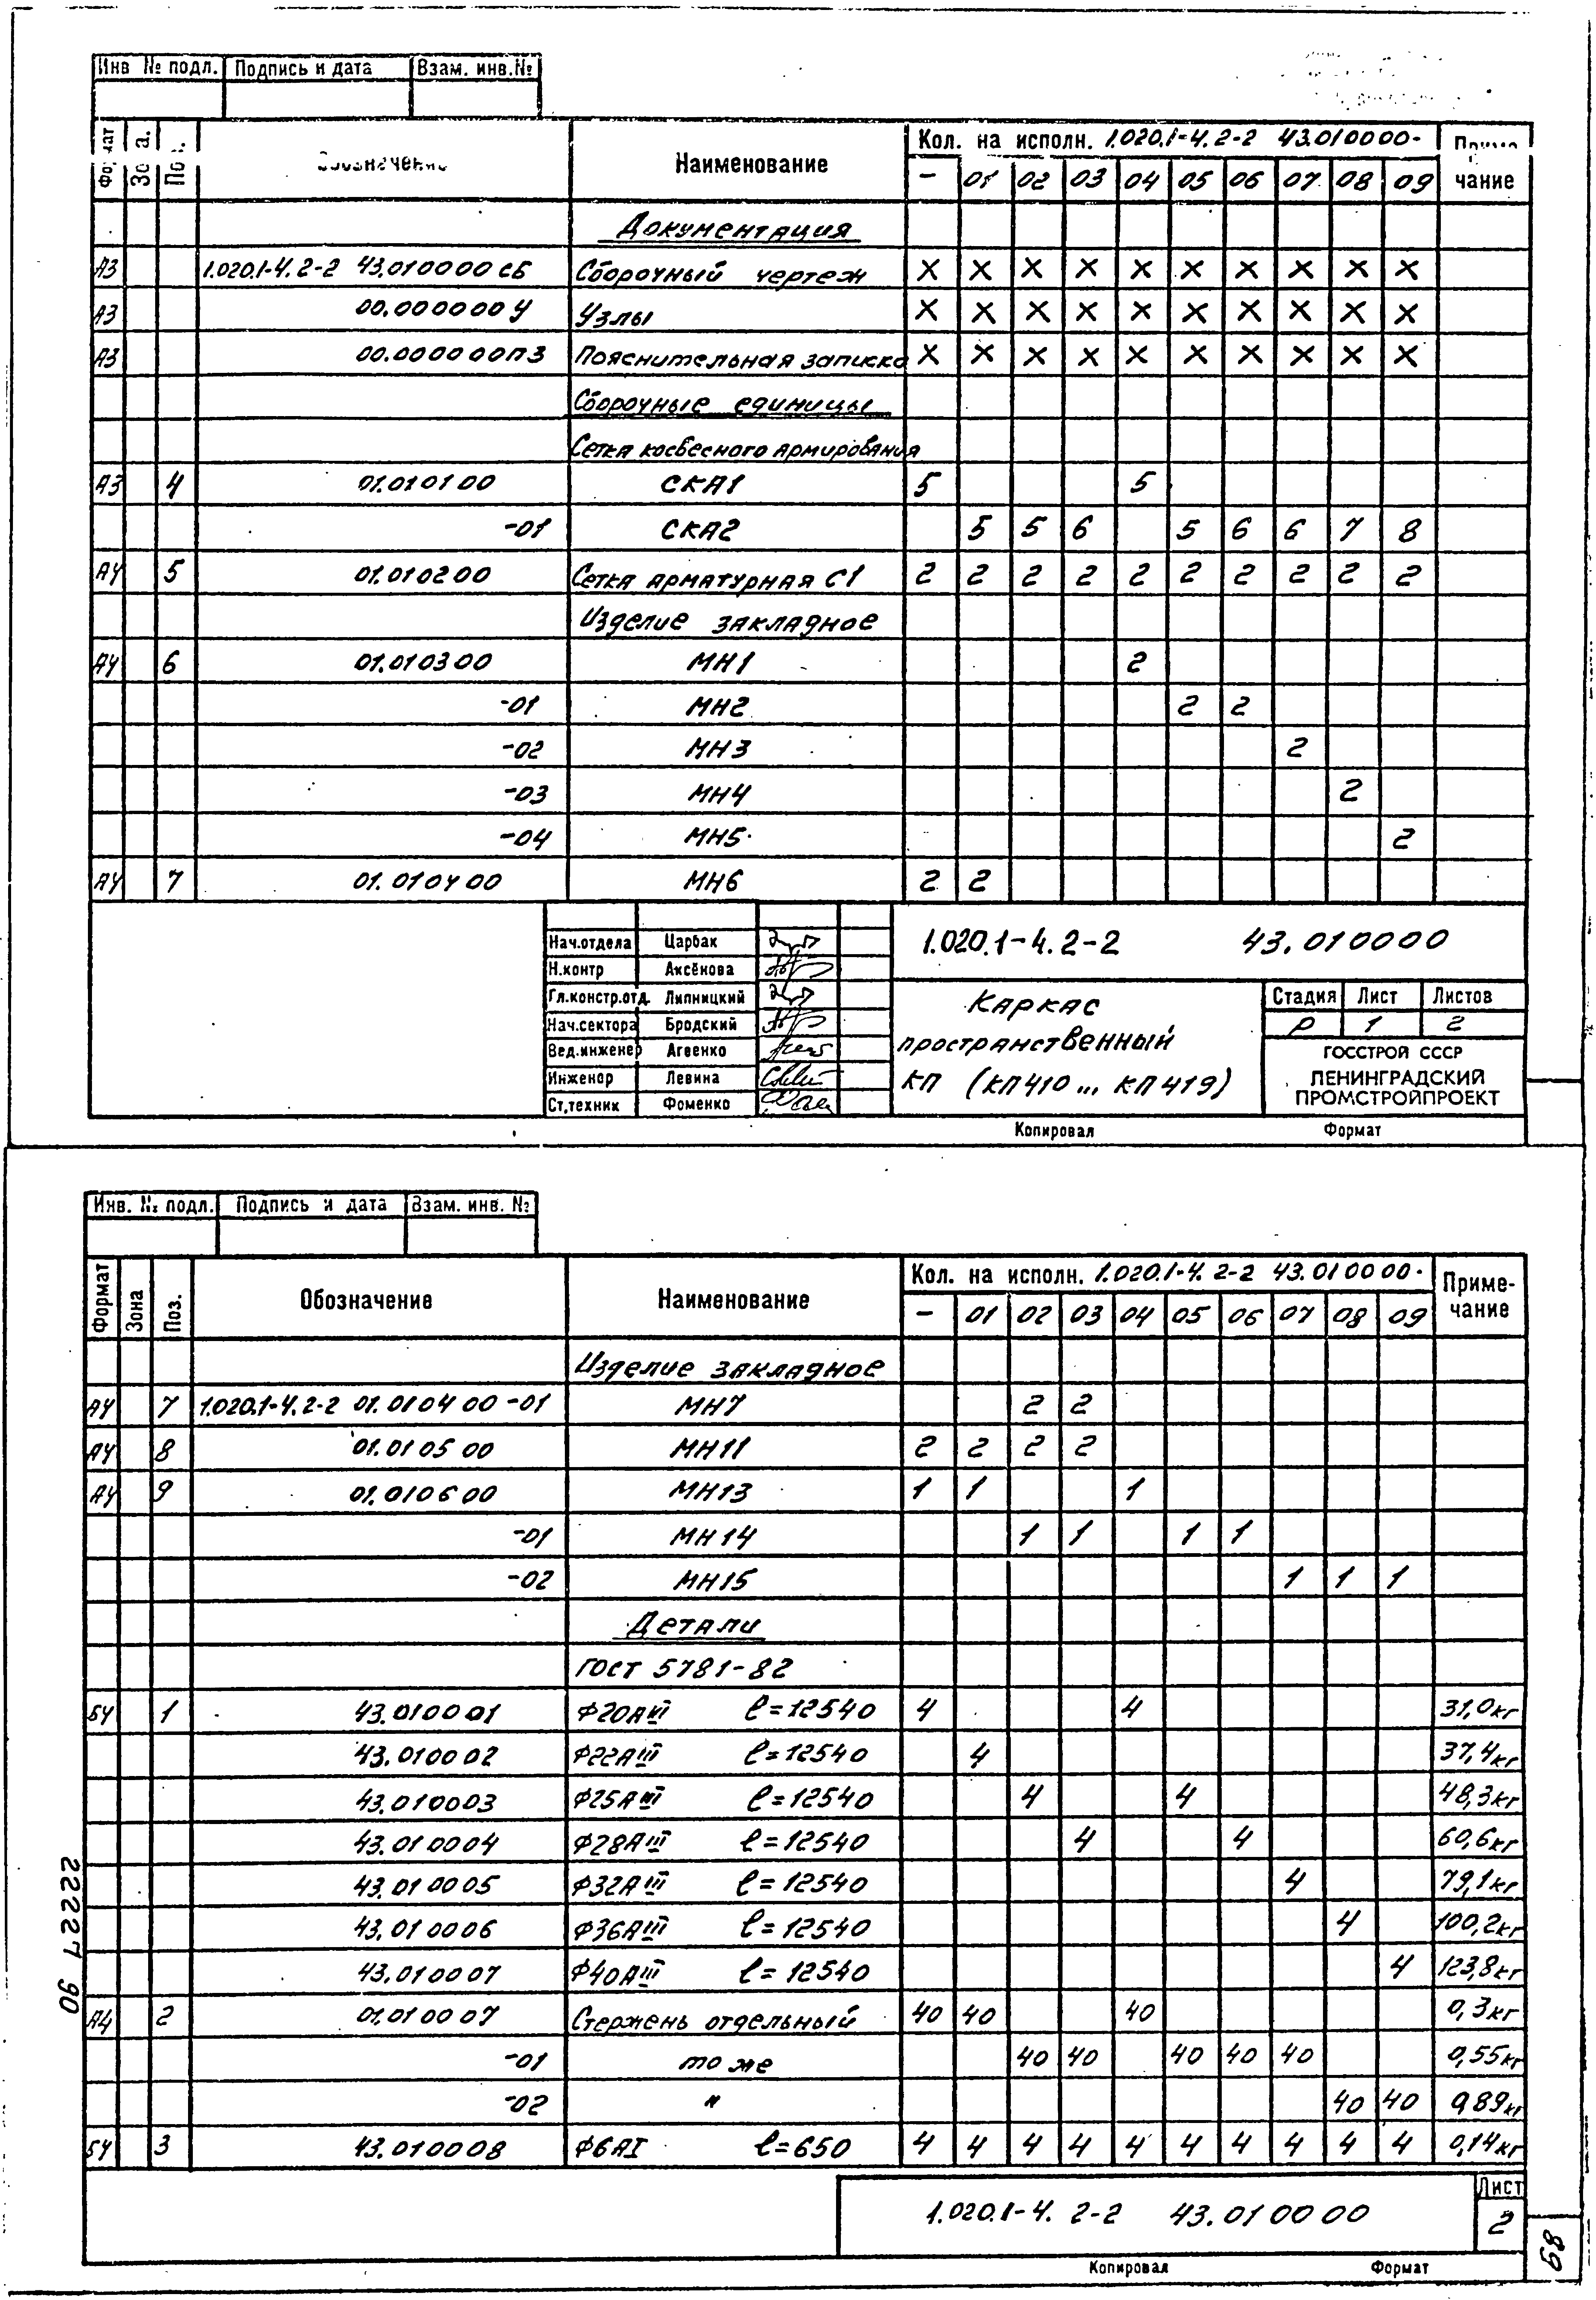 Инв № подл. Подпись и дата Взам. инв.№
Формат Зона Поз. Обозначение Наименование Кол. на исполн. 1.020.1-4.2-2 43.010000- Примечание
- 01 02 03 04 05 06 07 08 09
Документация
А3 1.020.1-4.2-2 43.010000 СБ Сборочный чертеж X X X X X X X X X X
А3 00.000000 У Узлы X X X X X X X X X X
А3 00.000000 ПЗ Пояснительная записка X X X X X X X X X X
Сборочные единицы
Сетка косвесного армирования
А3 4 01.010100 СКА1 5 5
-01 СКА2 5 5 6 5 6 6 7 8
А4 5 01.010200 Сетка арматурная С1 2 2 2 2 2 2 2 2 2 2
Изделие закладное
А4 6 01.010300 МН1 2
-01 МН2 2 2
-02 МН3 2
-03 МН4 2
-04 МН5 2
А4 7 01.010400 МН6 2 2
Нач.отдела Царбак
Н.контр Аксёнова
Гл.констр.отд. Липницкий
Нач.сектора Бродский
Вед.инженер Агеенко
Инженер Левина
Ст.техник Фоменко
1.020.1-4.2-2 43.010000
Каркас
пространственный
КП (КП410... КП419)
Стадия Лист Листов
Р 1 2
ГОССТРОЙ СССР
ЛЕНИНГРАДСКИЙ
ПРОМСТРОЙПРОЕКТ
Копировал Формат
Инв. № подл. Подпись и дата Взам. инв. №
Формат Зона Поз. Обозначение Наименование Кол. на исполн. 1.020.1-4.2-2 43.010000- Примечание
- 01 02 03 04 05 06 07 08 09
Изделие закладное
А4 7 1.020.1-4.2-2 01.010400-01 МН7 2 2
А4 8 01.010500 МН11 2 2 2 2
А4 9 01.010600 МН13 1 1 1
-01 МН14 1 1 1 1
-02 МН15 1 1 1
Детали
ГОСТ 5781-82
БЧ 1 43.010001 Ф20АIII ℓ=12540 4 4 31,0кг
43.010002 Ф22АIII ℓ=12540 4 37,4кг
43.010003 Ф25АIII ℓ=12540 4 4 48,3кг
43.010004 Ф28АIII ℓ=12540 4 4 60,6кг
43.010005 Ф32АIII ℓ=12540 4 79,1кг
43.010006 Ф36АIII ℓ=12540 4 100,2кг
43.010007 Ф40АIII ℓ=12540 4 123,8кг
А4 2 01.010007 Стержень отдельный 40 40 40 0,3кг
-01 то же 40 40 40 40 40 0,55кг
-02 " 40 40 0,89кг
БЧ 3 43.010008 Ф6АI ℓ=650 4 4 4 4 4 4 4 4 4 4 0,14кг
1.020.1-4.2-2 43.010000
Лист
2
Копировал Формат
222227 90
89